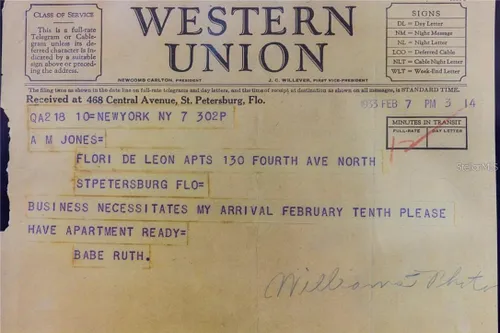 CLASS OF SERVICE
This is a full-rate
Telegram or Cable-
gram unless its de-
ferred character is in-
dicated by a suitable
sign above or preced-
ing the address.
WESTERN
UNION
NEWCOMB CARLTON, PRESIDENT
J. C. WILLEVER, FIRST VICE-PRESIDENT
SIGNS
DL = Day Letter
NM = Night Message
NL = Night Letter
LCO = Deferred Cable
NLT = Cable Night Letter
WLT = Week-End Letter
The filing time as shown in the date line on full-rate telegrams and day letters, and the time of receipt at destination as shown on all messages, is STANDARD TIME.
Received at 468 Central Avenue, St. Petersburg, Flo.
1933 FEB 7 PM 3 14
QA218 10=NEWYORK NY 7 302P
MINUTES IN TRANSIT
FULL-RATE DAY LETTER
A M JONES=
FLORI DE LEON APTS 130 FOURTH AVE NORTH
STPETERSBURG FLO=
BUSINESS NECESSITATES MY ARRIVAL FEBRUARY TENTH PLEASE
HAVE APARTMENT READY=
BABE RUTH.
Williams Photo
StellarMLS